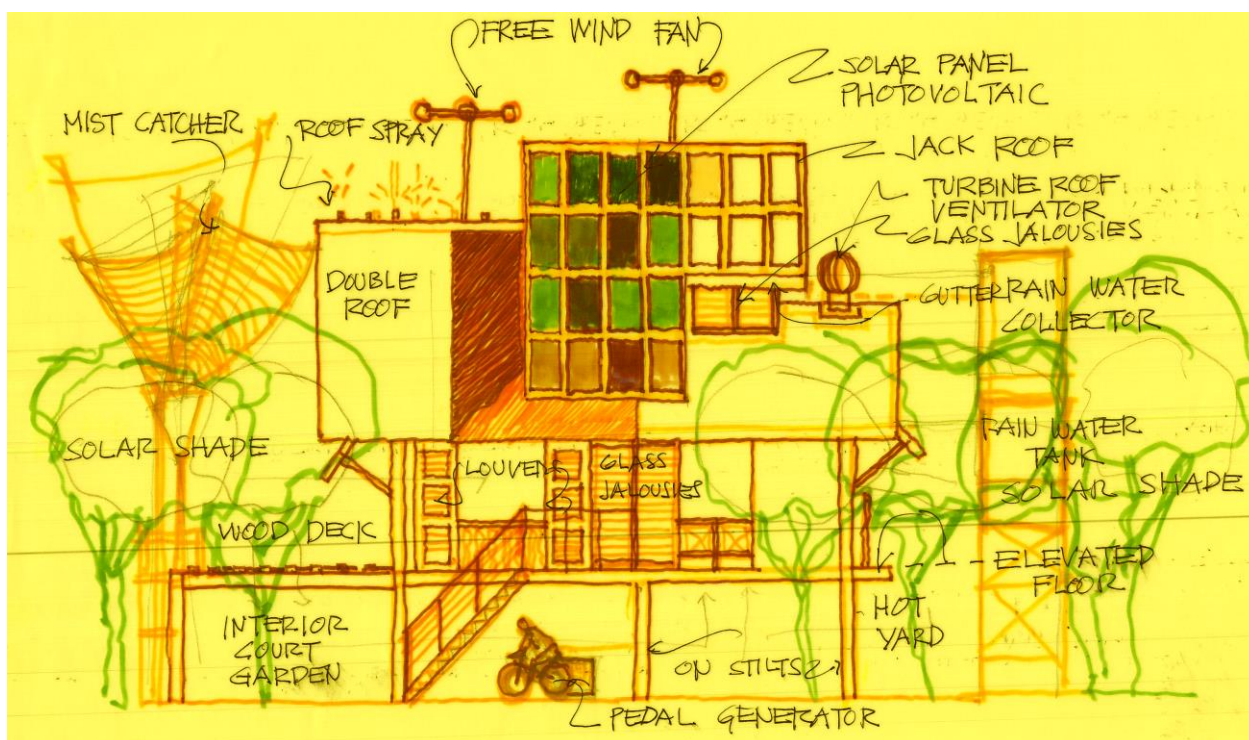 FREE WIND FAN
SOLAR PANEL
PHOTOVOLTAIC
MIST CATCHER
ROOF SPRAY
JACK ROOF
TURBINE ROOF
VENTILATOR
GLASS JALOUSIES
DOUBLE
ROOF
GUTTER
RAIN WATER
COLLECTOR
SOLAR SHADE
LOUVERS
GLASS
JALOUSIES
RAIN WATER
TANK
SOLAR SHADE
WOOD DECK
ELEVATED
FLOOR
INTERIOR
COURT
GARDEN
HOT
YARD
ON STILTS
PEDAL GENERATOR